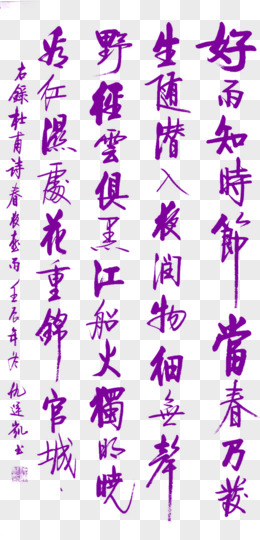 好雨知時節當春乃發
生随潜入夜潤物細無聲
野徑雲俱黑江船火獨明曉
看红濕處花重錦官城
右錄杜甫詩春夜喜雨壬辰年書